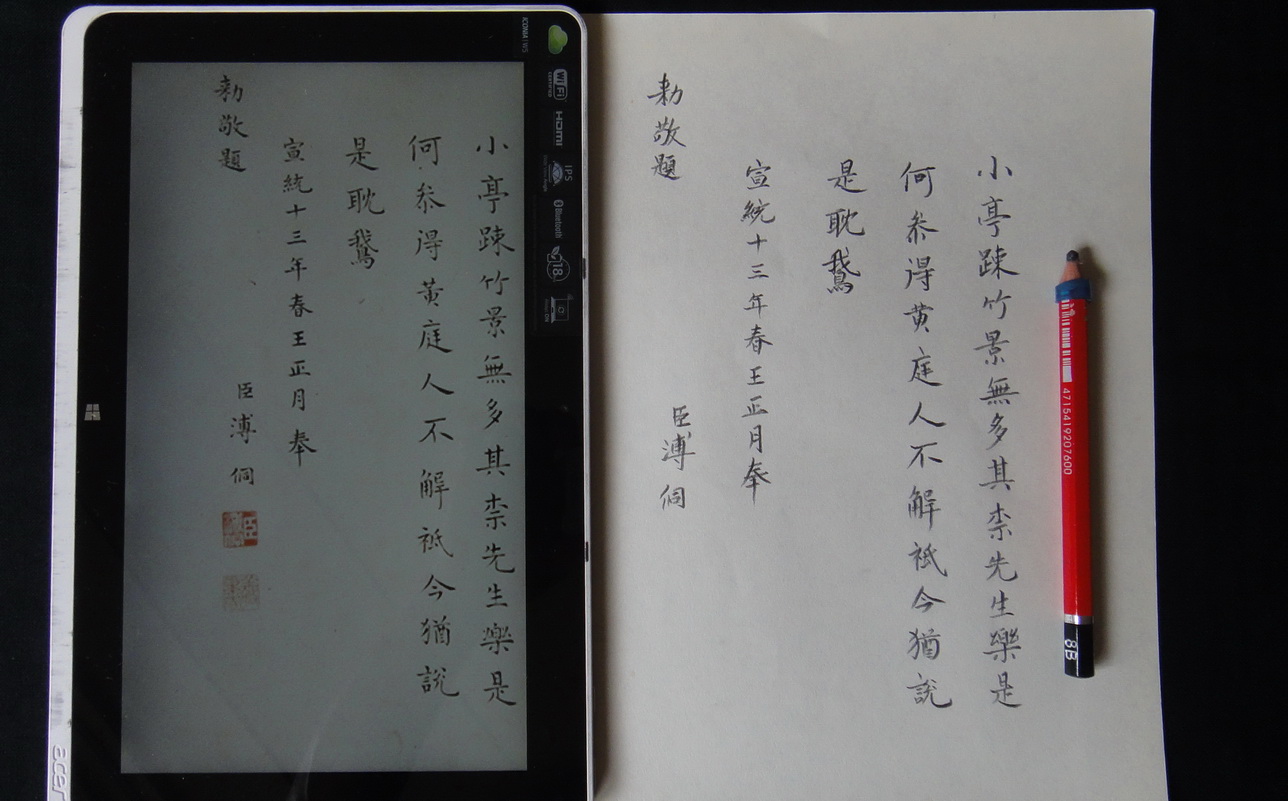 小亭踈竹景無多其柰先生樂是
何叅得黃庭人不解祗今猶說
是耽鵞
宣統十三年春王正月奉
勅敬題
臣溥侗
ICONIA W5
Wi Fi
CERTIFIED
HDMI
IPS
Bluetooth
18
acer
小亭踈竹景無多其柰先生樂是
何叅得黃庭人不解祗今猶說
是耽鵞
宣統十三年春王正月奉
勅敬題
臣溥侗
4715419207600
8B